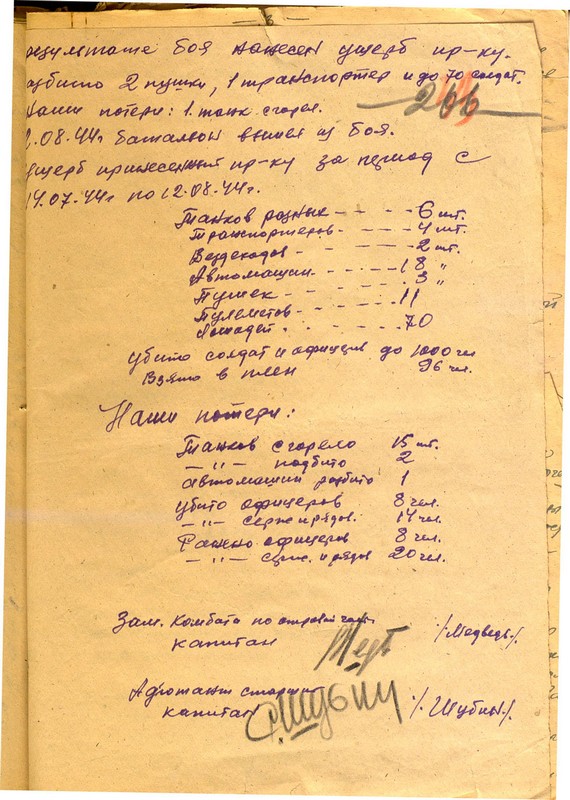 — 6 —
результате боя нанесен ущерб пр-ку.
разбито 2 пушки, 1 транспортер и до 70 солдат.
Наши потери: 1 танк сгорел.
206
2.08.44г батальон вышел из боя.
ущерб принесенный пр-ку за период с
14.07.44г по 12.08.44г.
Танков разных - - - - 6 шт.
Транспортеров - - - - 4 шт.
Вездеходов - - - - 2 шт.
Автомашин - - - - 18 "
Пушек - - - - 3 "
Пулеметов - - - - 11
Лошадей . - - - - 70
убито солдат и офицеров до 1000 чел
Взято в плен 96 чел.
Наши потери:
Танков сгорело 15 шт.
— " — подбито 2
автомашин разбито 1
убито офицеров 8 чел.
— " — серж и рядов. 14 чел.
Ранено офицеров 8 чел.
— " — серж. и рядов 20 чел.
Зам. Комбата по строевой части
капитан /Медведь/.
Адъютант старший
капитан /Шубин/.